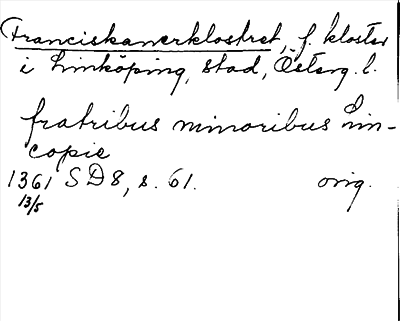 Franciskanerklostret, f. kloster
i Linköping, stad, Österg. l.
fratribus minoribus Lin-
copie
1361 SD8, s. 61. orig.
13/5